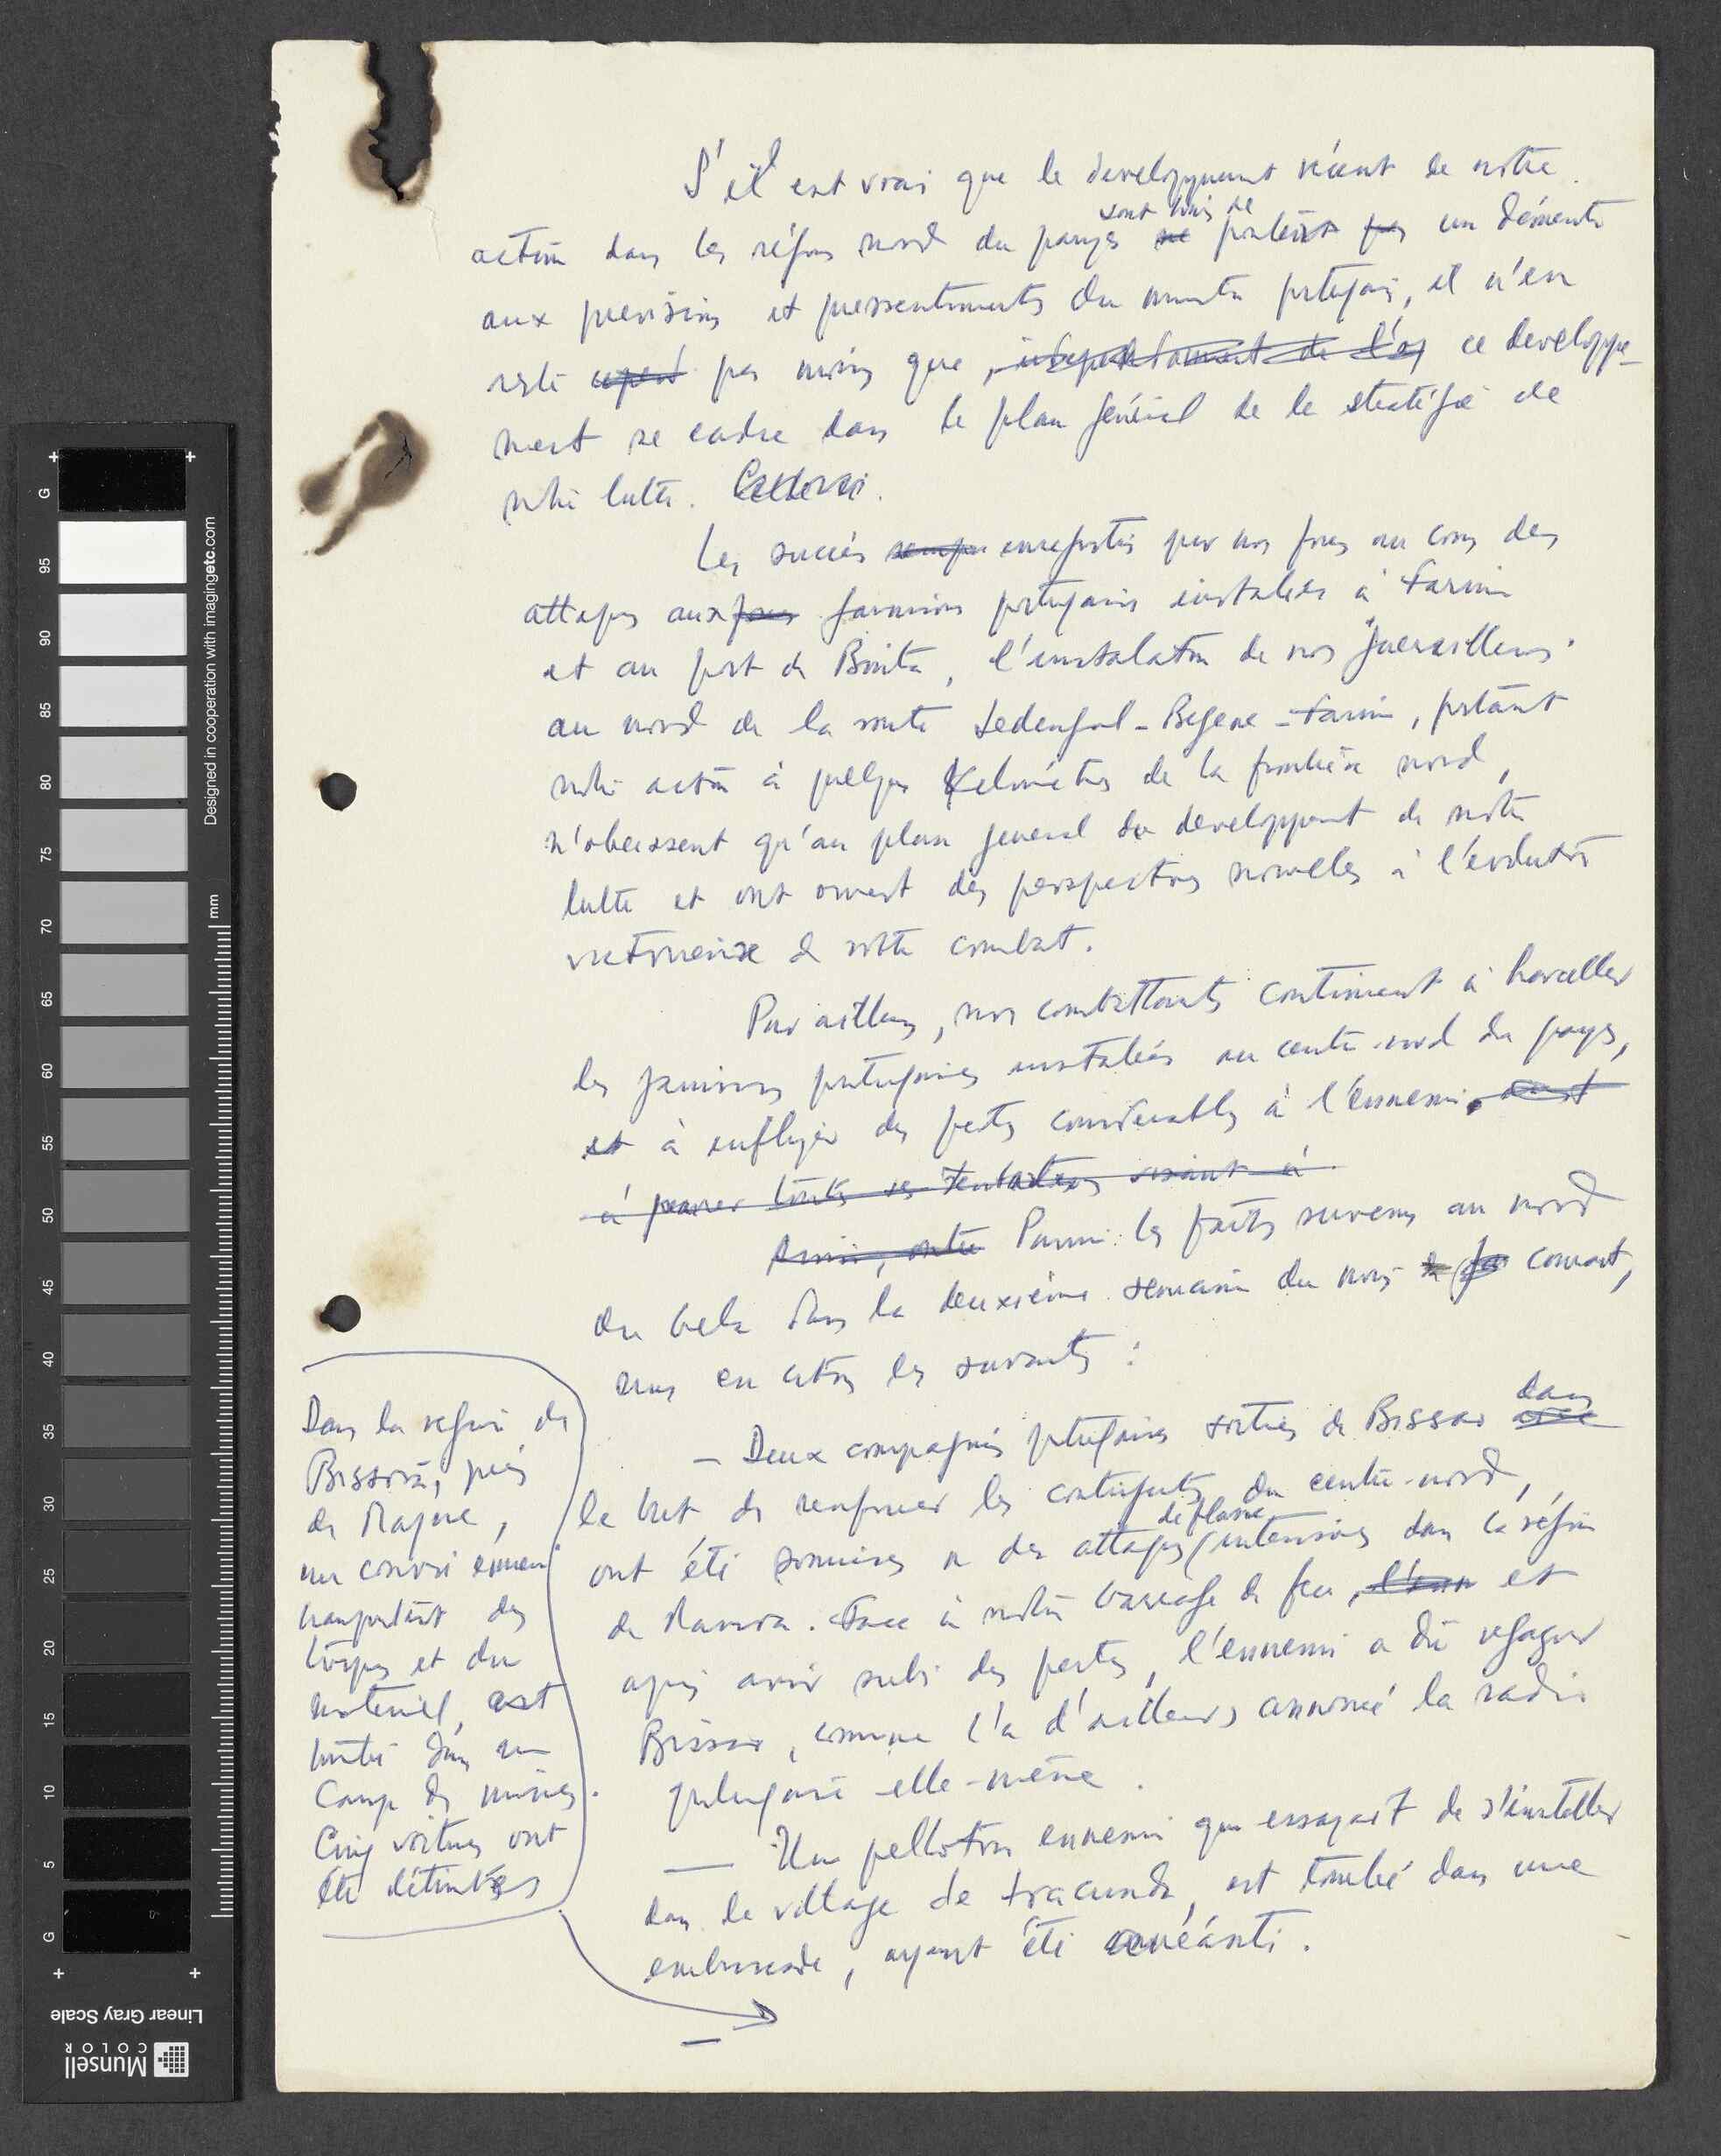 S'il est vrai que le developpement récent de notre
action dans les régions nord du pays sont loin de porter un démenti
aux previsions et pressentiments du ministre portugais, il n'en
reste pas moins que ce developpe-
ment se cadre dans le plan général de la stratégie de
notre lutte.
Les succès enregistrés par nos forces au cours des
attaques aux garnisons portugaises installées à Farim
et au port de Binta, l'installation de nos guerrilleros
au nord de la route Sedengal - Begene - Farim, portant
notre action à quelques kelométres de la frontière nord,
n'obeissent qu'au plan general du developpement de notre
lutte et ont ouvert des perspectives nouvelles à l'evolution
victorieuse de notre combat.
Par ailleurs, nos combattants continuent à harceller
les garnisons portugaises installées au centre-nord du pays,
et à infliger des pertes considerables à l'ennemi
à toutes ses tentatives visant à
Parmi les faits survenus au nord
du Geba dans la deuxième semaine du mois courant,
nous en citons les suivants :
— Deux compagnies portugaises sorties de Bissao dans
le but de renforcer les contingents du centre-nord,
ont été soumises a des attaques intensives dans la région
de Mansoa. Face à notre barrage de feu, et
après avoir subi des pertes, l'ennemi a dû regagner
Bissao, comme l'a d'ailleurs annoncé la radio
portugaise elle-même.
— Un pelloton ennemi que essayait de s'installer
dans le village de Fracunda, est tombé dans une
embuscade, ayant été anéanti.
Dans la region de
Bissorã, près
de Maqué,
un convoi ennemi
transportant des
troupes et du
materiel, est
tombé dans un
camp de mines.
Cinq voitures ont
été détruites
—
Designed in cooperation with imagingetc.com
mm
G
95
90
85
80
75
70
65
60
55
50
45
40
35
30
25
20
15
10
5
G
Linear Gray Scale
Munsell
COLOR